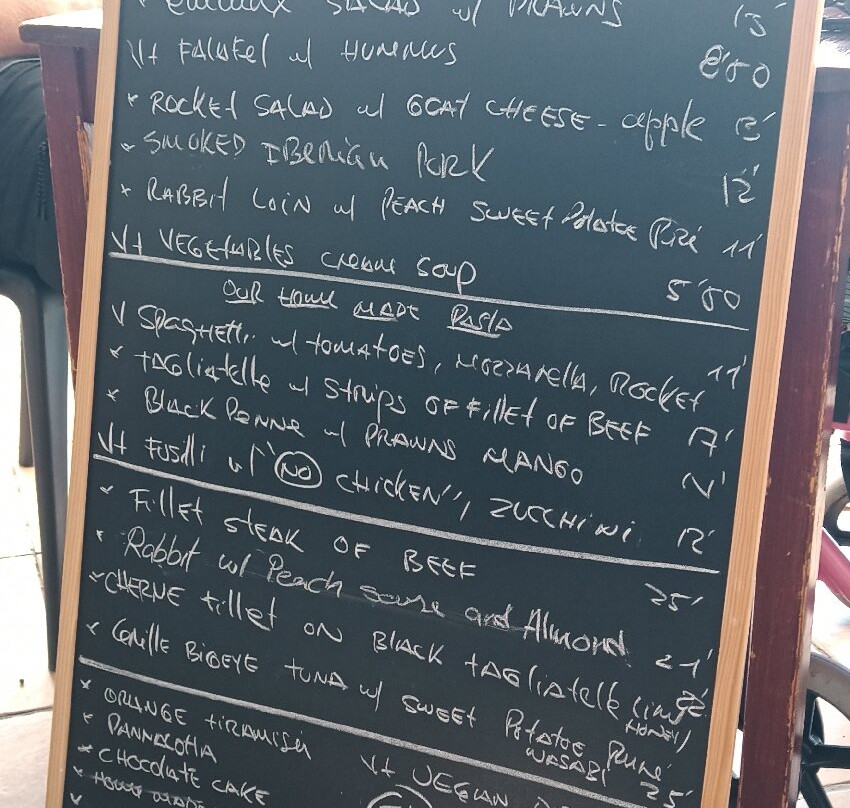 SALAD w/ PRAWNS 13'
V+ FALAFEL w/ HUMMUS 8'50
* ROCKET SALAD w/ GOAT CHEESE - apple
* SMOKED IBERIAN PORK 12'
* RABBIT LOIN w/ PEACH SWEET POTATOE 11'
V+ VEGETABLES CREAM SOUP 5'50
OUR HOME MADE PASTA
V SPAGHETTI w/ TOMATOES, MOZZARELLA, ROCKET 11'
* TAGLIATELLE w/ STRIPS OF FILLET OF BEEF 17'
* BLACK PENNE w/ PRAWNS MANGO
V+ FUSILLI w/ "NO CHICKEN", ZUCCHINI 12'
* FILLET STEAK OF BEEF 25'
* Rabbit w/ Peach and Almond 21'
* CHERNE fillet ON BLACK TAGLIATELLE
* BIGEYE TUNA w/ SWEET POTATOE 25'
HONEY/
WASABI
* ORANGE TIRAMISU
* PANNACOTTA V+ VEGAN
* CHOCOLATE CAKE
* HOME MADE